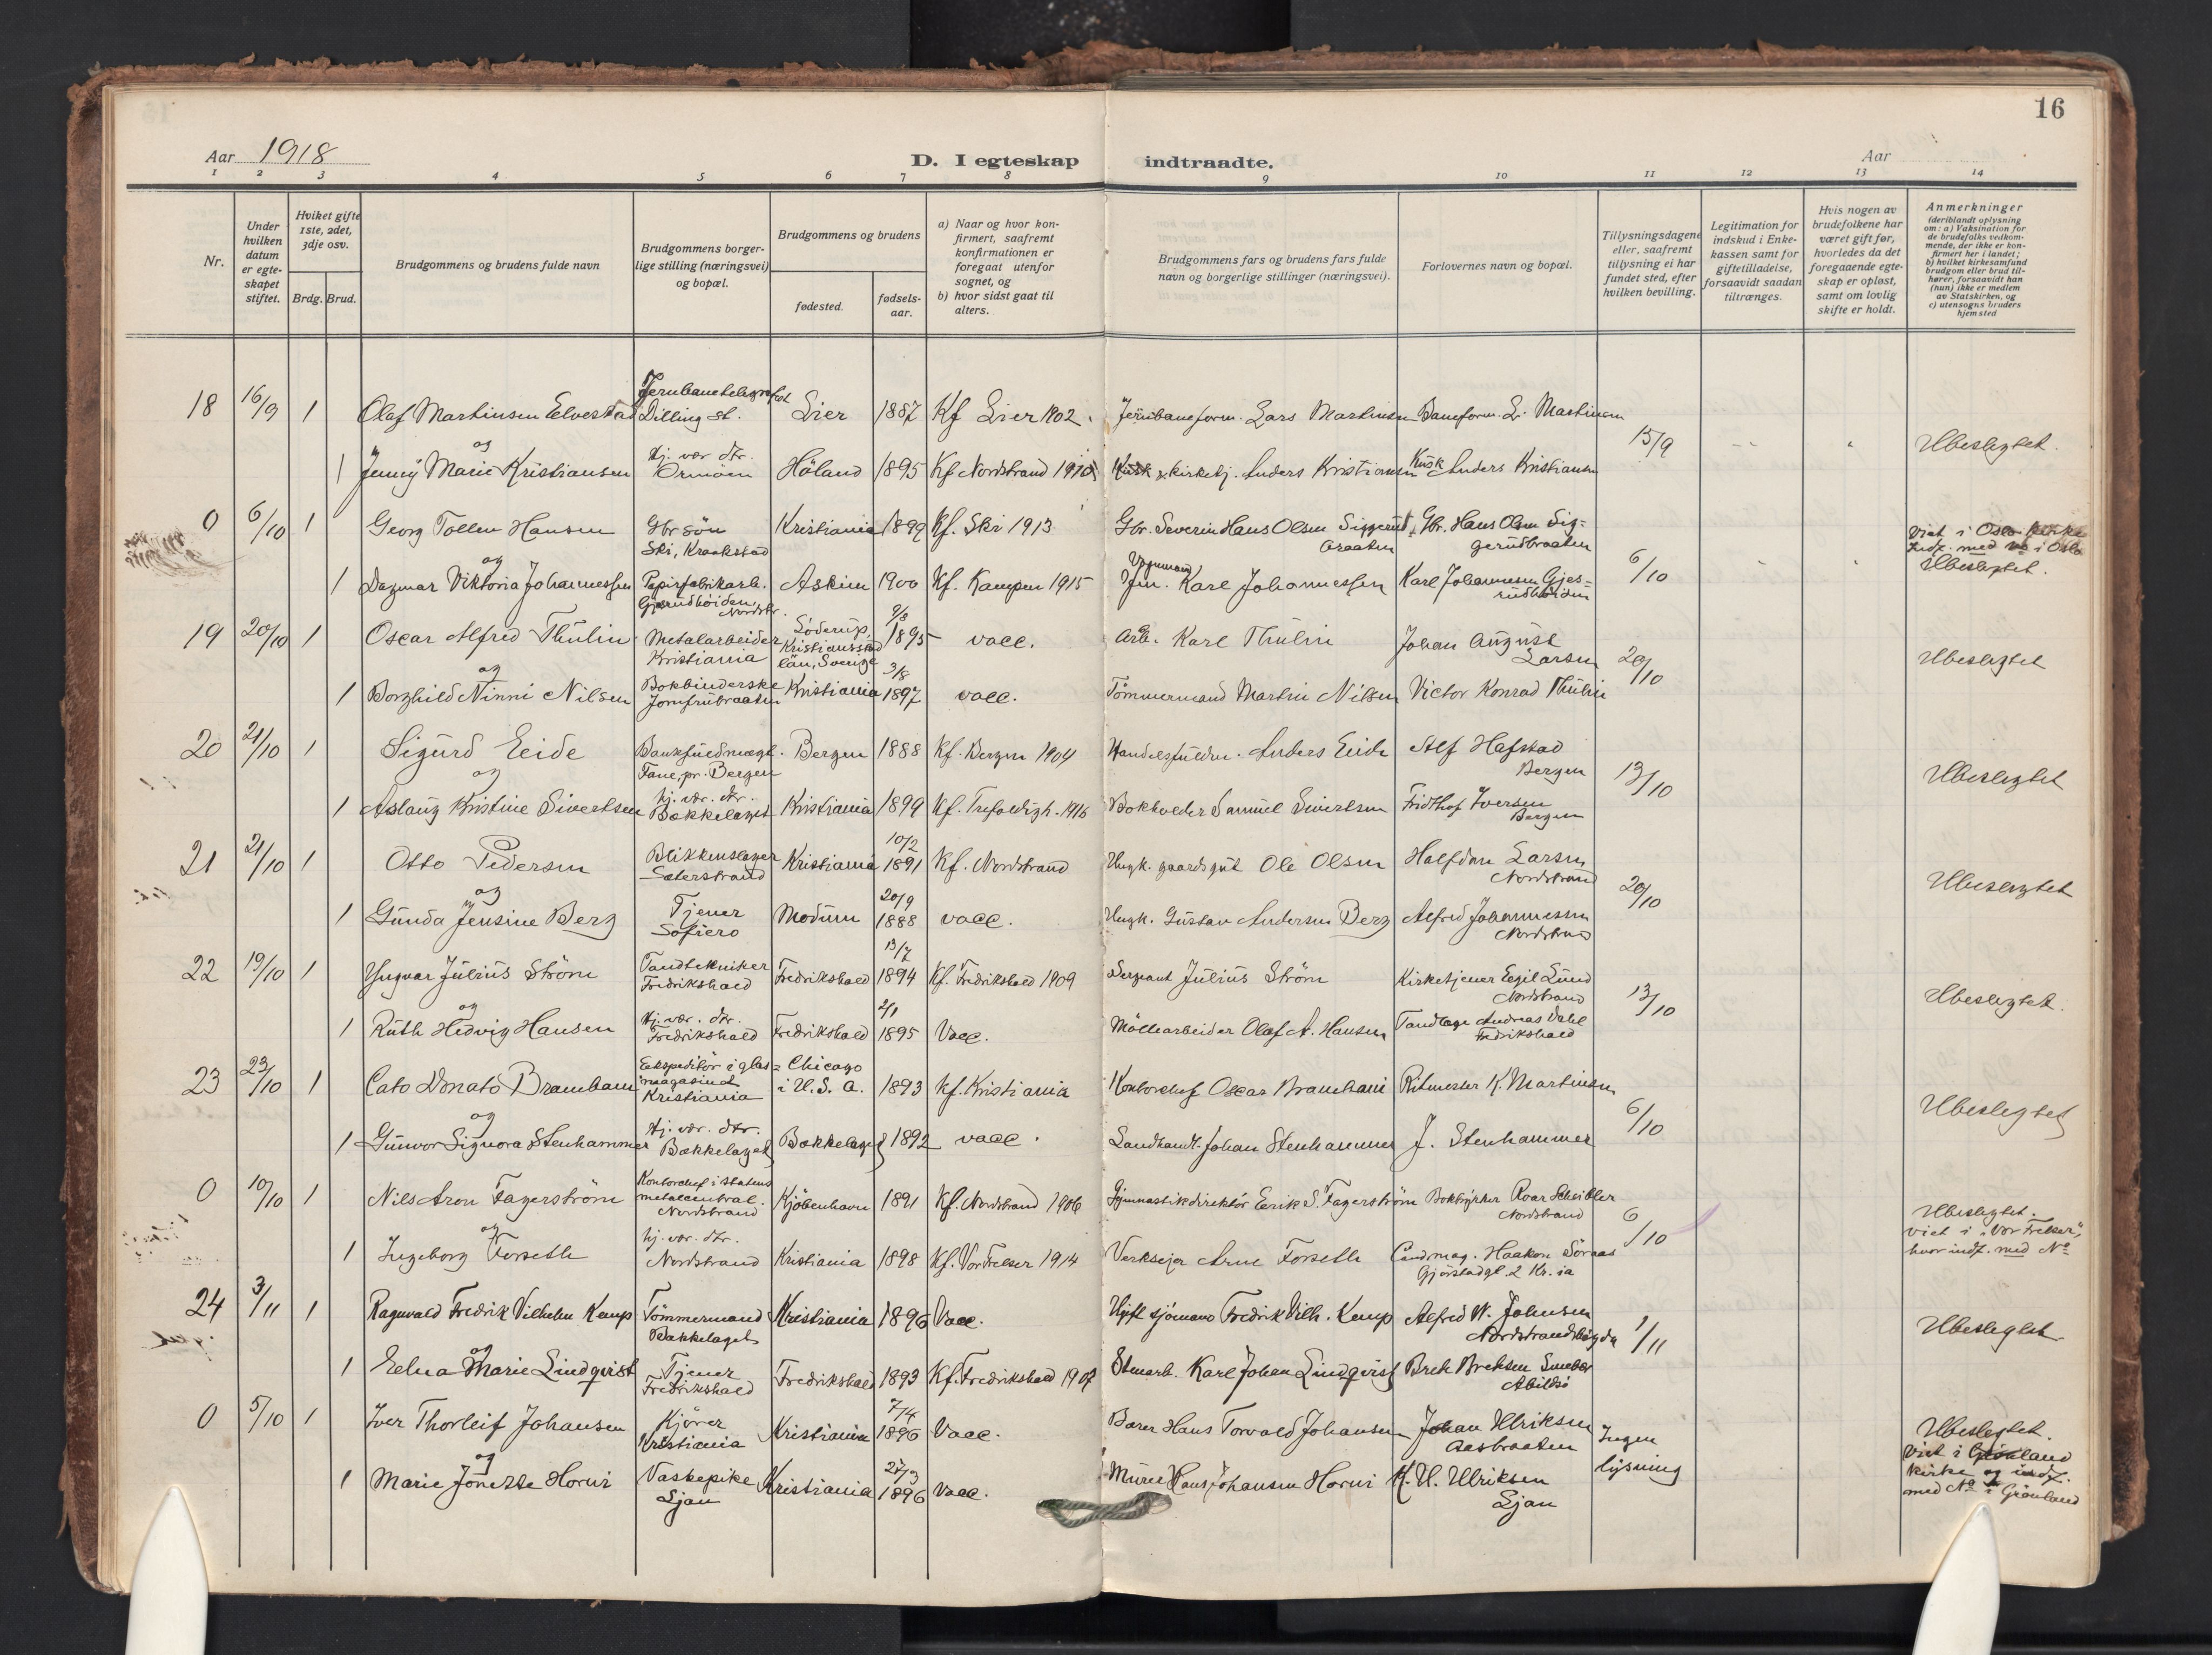 16
Aar 1918
D. I egteskap indtraadte.
Aar
1 2 3 4 5 6 7 8 9 10 11 12 13 14
Nr.
Under hvilken datum er egteskapet stiftet.
Hviket gifte 1ste, 2det, 3dje osv.
Brdg. Brud.
Brudgommens og brudens fulde navn
Brudgommens borgerlige stilling (næringsvei) og bopæl.
Brudgommens og brudens
fødested.
fødselsaar.
a) Naar og hvor konfirmert, saafremt konfirmationen er foregaat utenfor sognet, og
b) hvor sidst gaat til alters.
Brudgommens fars og brudens fars fulde navn og borgerlige stillinger (næringsvei).
Forlovernes navn og bopæl.
Tillysningsdagene eller, saafremt tillysning ei har fundet sted, efter hvilken bevilling.
Legitimation for indskud i Enkekassen samt for giftetilladelse, forsaavidt saadan tiltrænges.
Hvis nogen av brudefolkene har været gift før, hvorledes da det foregaaende egteskap er opløst, samt om lovlig skifte er holdt.
Anmerkninger (deriblandt oplysning om: a) Vaksination for de brudefolks vedkommende, der ikke er konfirmert her i landet; b) hvilket kirkesamfund brudgom eller brud tilhører, forsaavidt han (hun) ikke er medlem av Statskirken, og c) utensogns bruders hjemsted
18 16/9 1 Olaf Martinsen Elvestad Jernbanetelegrafist Dilling st. Lier 1887 Kf Lier 1902. Jernbaneform. Lars Martinsen Baneform. L. Martinsen 15/9 Ubeslegtet.
og
1 Jenny Marie Kristiansen Hj. vær. dtr. Ormöen Höland 1895 Kf Nordstrand 1910 Kusk & kirketj. Anders Kristiansen Kusk Anders Kristiansen
0 6/10 1 Georg Tollen Hansen Gbr sön Ski, Kraakstad Kristiania 1899 Kf. Ski 1913 Gbr. Severin Hans Olsen Gbr. Hans Olsen Siggerudbraaten 6/10 Viet i Oslo kirke Indf. med No i Oslo Ubeslegtet.
og
1 Dagmar Viktoria Johannessen Papirfabrikarb. Gjerudhöiden Nordstr. Askim 1900 Kf. Kampen 1915 Vognmand Karl Johannessen Karl Johannesen Gjesrudhöiden
19 20/10 1 Oscar Alfred Thulin Metalarbeider Kristiania Söderup, Kristiansstad län, Sverige 9/3 1895 vacc. Arb. Karl Thulin Johan August Larsen 20/10 Ubeslegtet
og
1 Borghild Ninni Nilsen Bokbinderske Jomfrubraaten Kristiania 3/8 1897 vacc. Tömmermand Martin Nilsen Victor Konrad Thulin
20 21/10 1 Sigurd Eide Bankfuldmægt. Fane, pr. Bergen Bergen 1888 Kf. Bergen 1904 Handelsfuldm. Anders Eide Alf Hafstad Bergen 13/10 Ubeslegtet
og
1 Aslaug Kristine Sivertsen hj. vær. dtr. Bækkelaget Kristiania 1899 Kf. Trefoldigh. 1916 Bokholder Samuel Sivertsen Fridthof Iversen Bergen
21 21/10 1 Otto Pedersen Blikkenslager Sæterstrand Kristiania 10/2 1891 Kf. Nordstrand Ungk. gaardsgut Ole Olsen Halfdan Larsen Nordstrand 20/10 Ubeslegtet
og
1 Gunda Jensine Berg Tjener Sofiero Modum 20/9 1888 vacc. Ungk. Gustav Andersen Berg Alfred Johannessen Nordstrand
22 19/10 1 Yngvar Julius Ström Tandtekniker Fredrikshald Fredrikshald 13/7 1894 Kf. Fredrikshald 1909 Sergeant Julius Ström Kirketjener Egil Lund Nordstrand 13/10 Ubeslegtet.
og
1 Ruth Hedvig Hansen Hj. vær. dtr. Fredrikshald Fredrikshald 2/1 1895 Vacc. Möllearbeider Olaf A. Hansen Tandlæge Andreas Dahl Fredrikshald
23 23/10 1 Cato Donato Bramhani Ekspeditör i glasmagasinet Kristiania Chicago i U.S.A. 1893 Kf. Kristiania Kontorchef Oscar Bramhani Ritmester K. Martinsen 6/10 Ubeslegtet
og
1 Gunvor Signora Stenhammer Hj. vær. dtr. Bækkelaget Bækkelaget 1892 vacc. Landhandl. Johan Stenhammer J. Stenhammer
0 10/10 1 Nils Aron Fagerström Kontorchef i Statens metalcentral. Nordstrand Kjöbenhavn 1891 Kf. Nordstrand 1906 Gymnastikdirektör Eerik S. Fagerström Boktrykker Roar Scheibler Nordstrand 6/10 Ubeslegtet. viet i "Vor Frelser", hvor indf. med No
og
1 Ingeborg Forseth hj. vær. dtr. Nordstrand Kristiania 1898 Kf. Vor Frelser 1914 Verkseier Arne Forseth Cand. mag. Haakon Söraas Gjörstadgt. 2 Kr.ia
24 3/11 1 Ragnvald Fredrik Vilhelm Kemp Tömmermand Bækkelaget Kristiania 1896 Vacc. Ugift sjömand Fredrik Vilh. Kemp Alfred W. Johnsen Nordstrandshögda 1/11 Ubeslegtet
og
1 Edna Marie Lindqvist Tjener Fredrikshald Fredrikshald 1893 Kf. Fredrikshald 1907 Stenarb. Karl Johan Lindqvist Abildsö
0 5/10 1 Iver Thorleif Johansen Kjörer Kristiania Kristiania 7/4 1896 Vacc. Bærer Hans Torvald Johansen Johan Ulriksen Aasbraaten Ingen lysning Ubeslegtet. Viet i Grönland kirke og indf. med No i Grönland
og
1 Marie Jonette Horni Vaskepike Ljan Kristiania 27/3 1896 Vacc. Murer Hans Johansen Horni K. U. Ulriksen Ljan